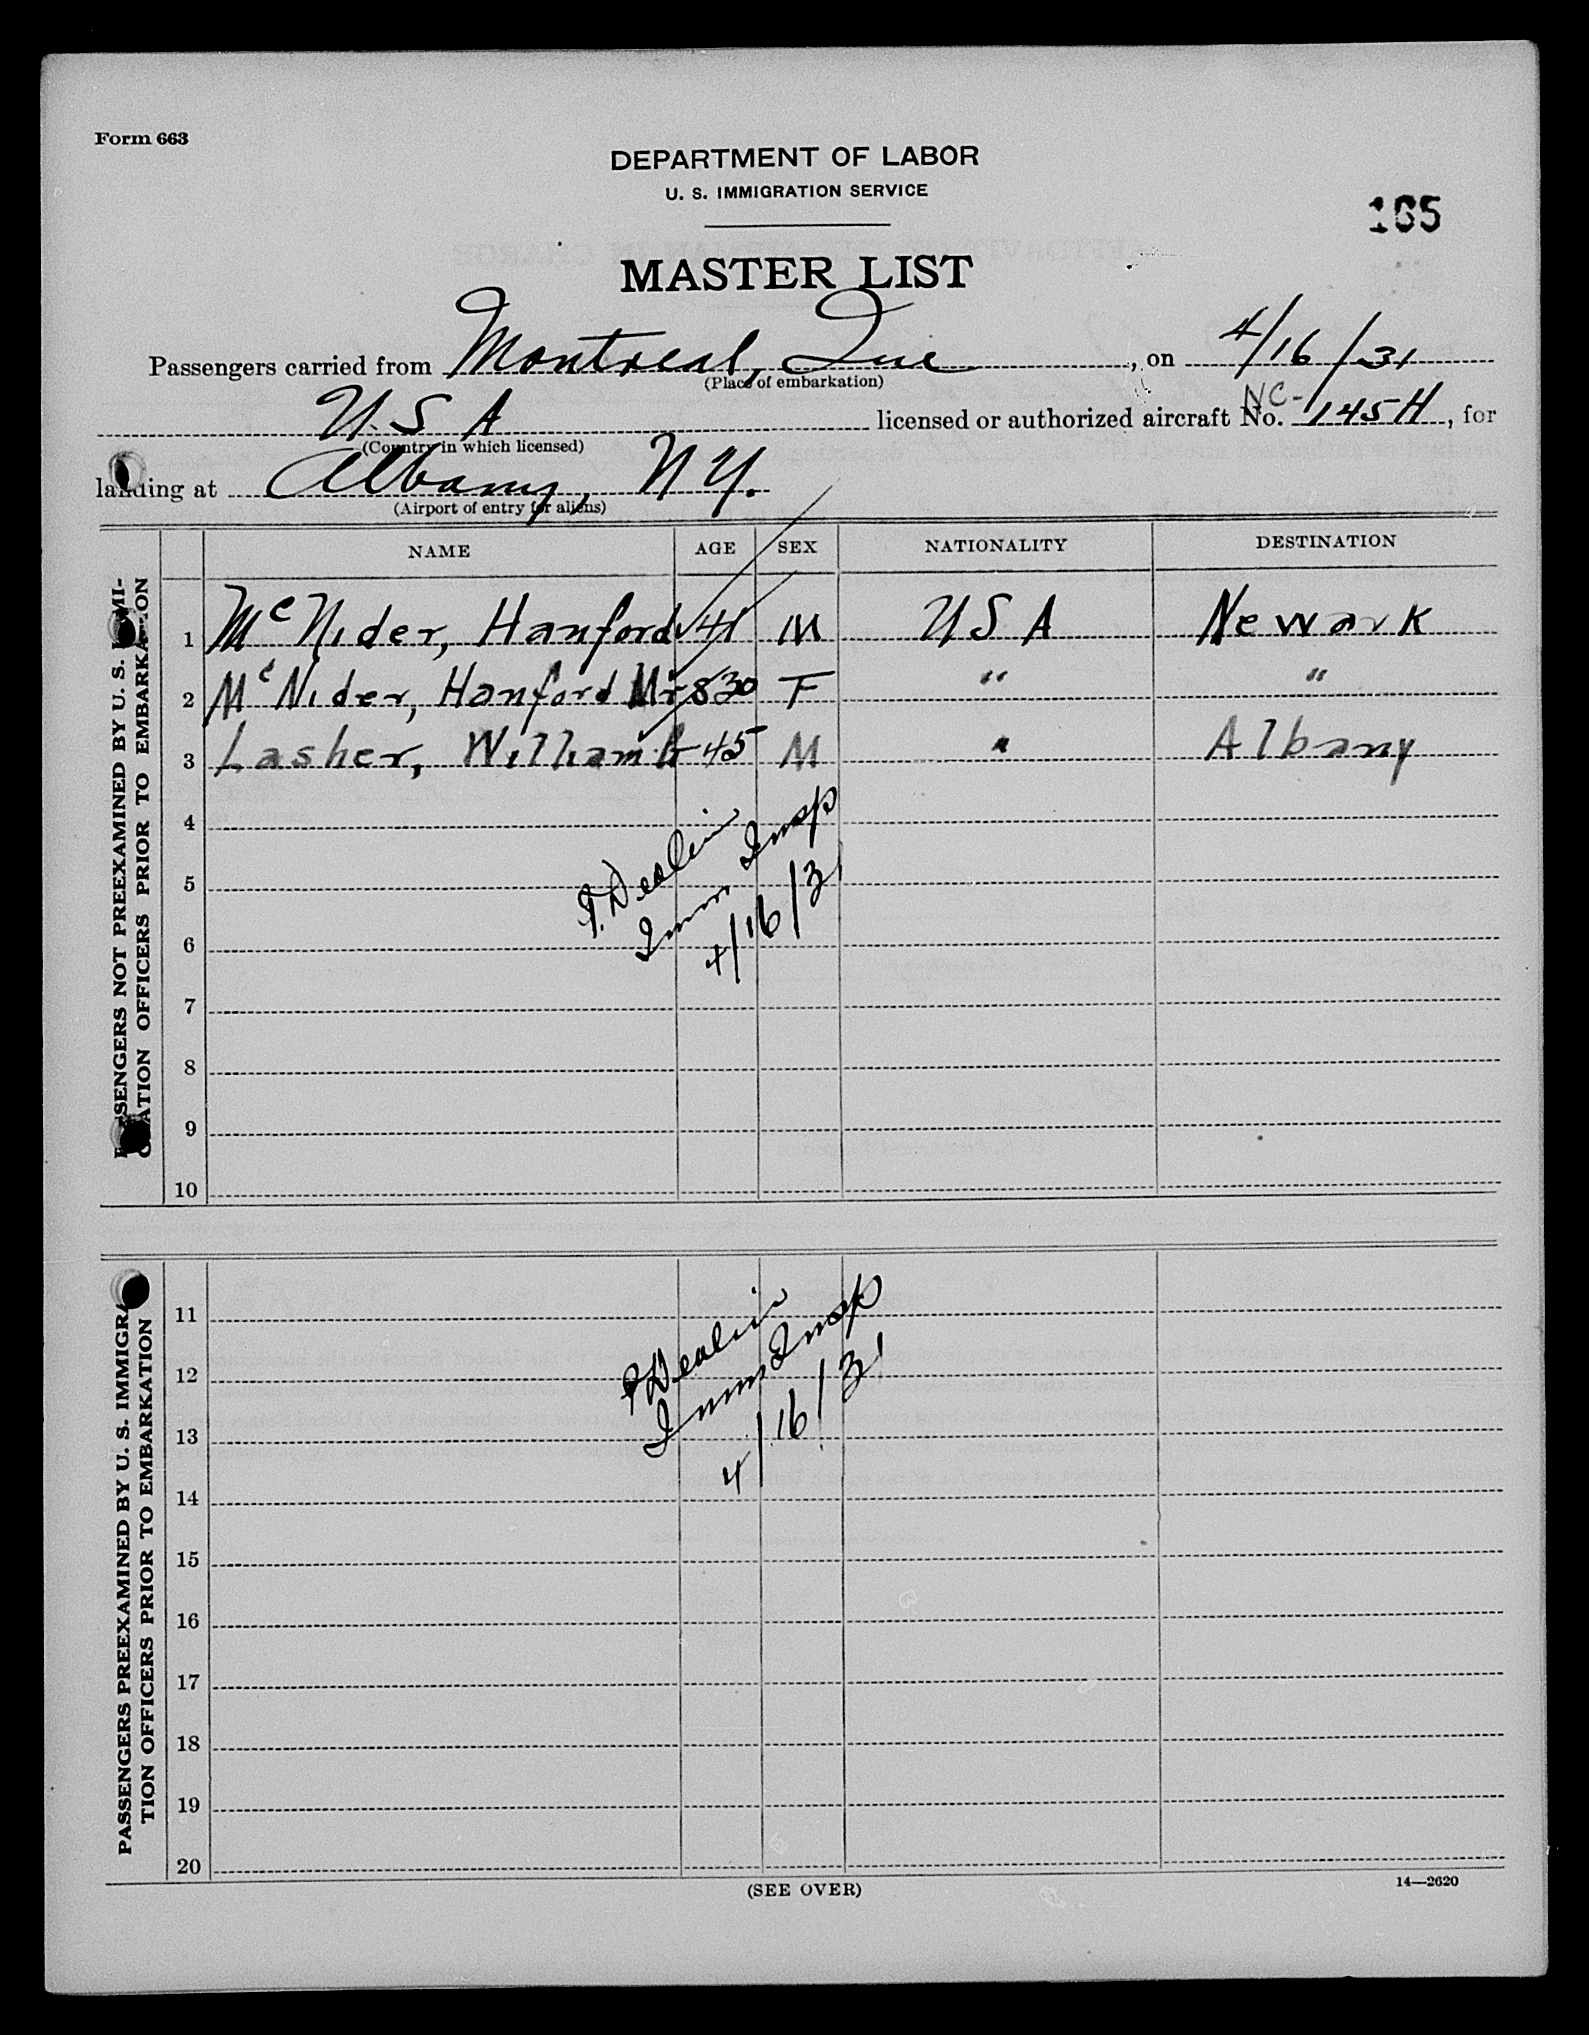 Form 663
DEPARTMENT OF LABOR
U. S. IMMIGRATION SERVICE
165
MASTER LIST
Passengers carried from Montreal, Que, on 4/16/31
(Place of embarkation)
U S A licensed or authorized aircraft No. NC-145H, for
(Country in which licensed)
landing at Albany, N Y.
(Airport of entry for aliens)
NAME AGE SEX NATIONALITY DESTINATION
PASSENGERS NOT PREEXAMINED BY U. S. IMMI-
GRATION OFFICERS PRIOR TO EMBARKATION
1 McNider, Hanford 41 M U S A Newark
2 McNider, Hanford Mrs 30 F " "
3 Lasher, William 45 M " Albany
4
5
6
7
8
9
10
Imm Insp
4/16/31
PASSENGERS PREEXAMINED BY U. S. IMMIGRA-
TION OFFICERS PRIOR TO EMBARKATION
11
12
13
14
15
16
17
18
19
20
Imm Insp
4/16/31
(SEE OVER)
14—2620